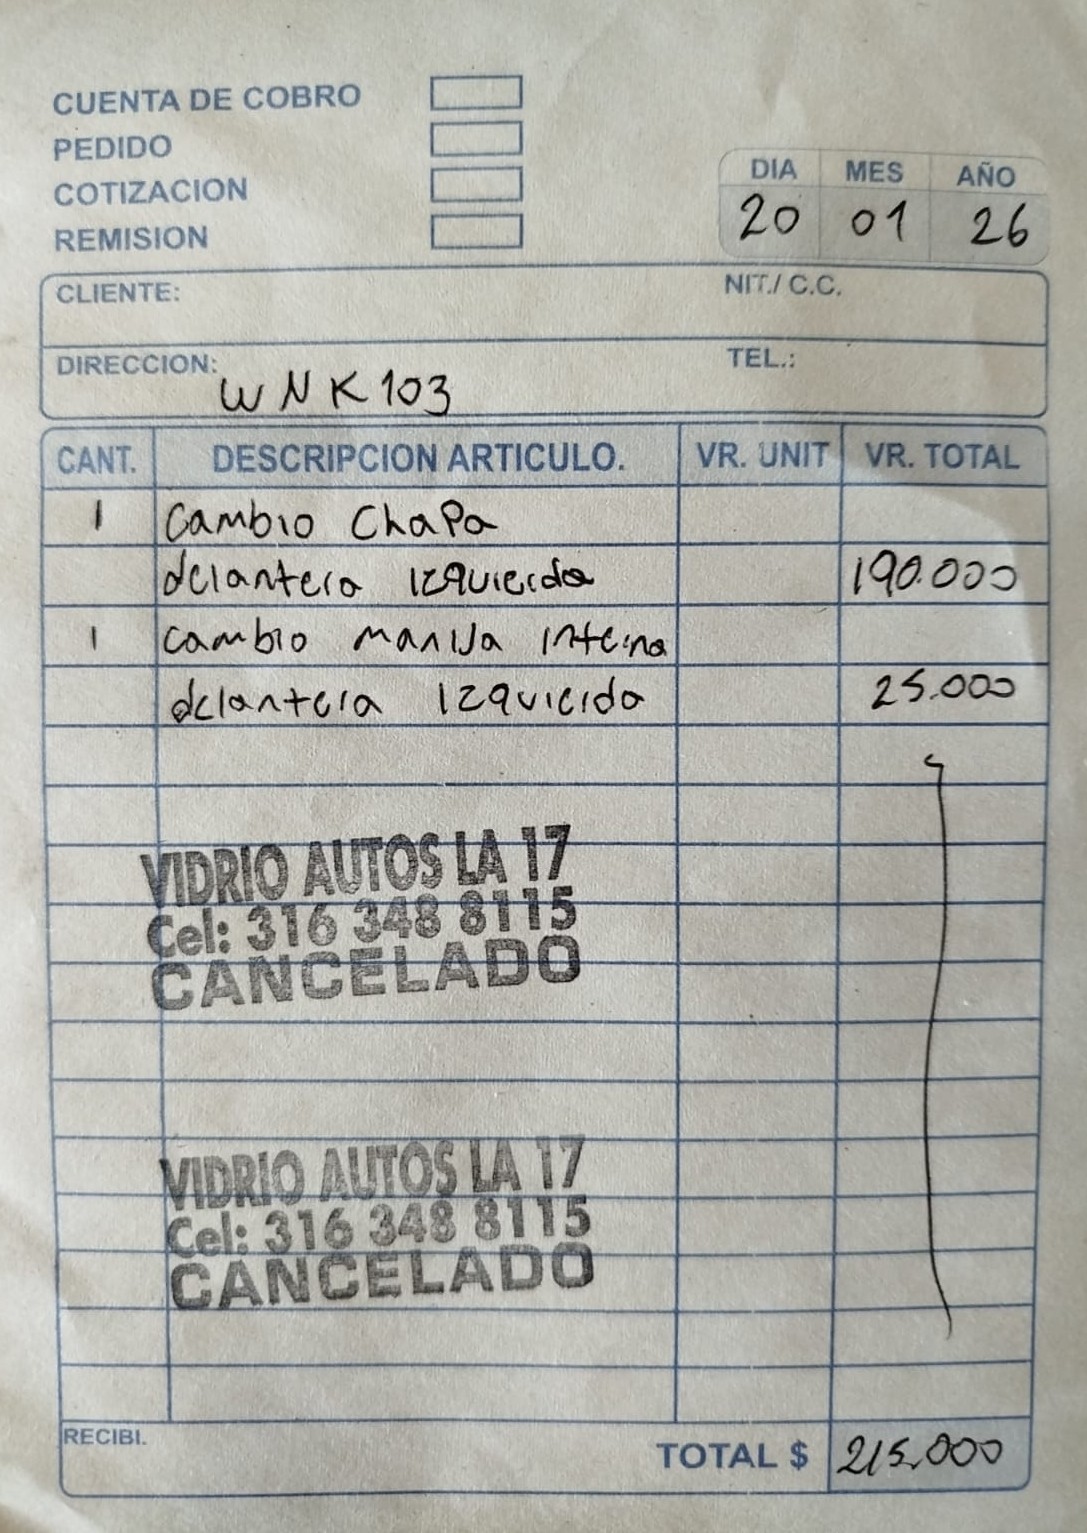 CUENTA DE COBRO
PEDIDO
COTIZACION
REMISION
DIA MES AÑO
20 01 26
CLIENTE: NIT./ C.C.
DIRECCION: TEL.:
WNK103
CANT. DESCRIPCION ARTICULO. VR. UNIT VR. TOTAL
1 Cambio Chapa
delantera izquierda 190.000
1 cambio manija interna
delantera izquierda 25.000
VIDRIO AUTOS LA 17
Cel: 316 348 8115
CANCELADO
VIDRIO AUTOS LA 17
Cel: 316 348 8115
CANCELADO
RECIBI.
TOTAL $ 215.000